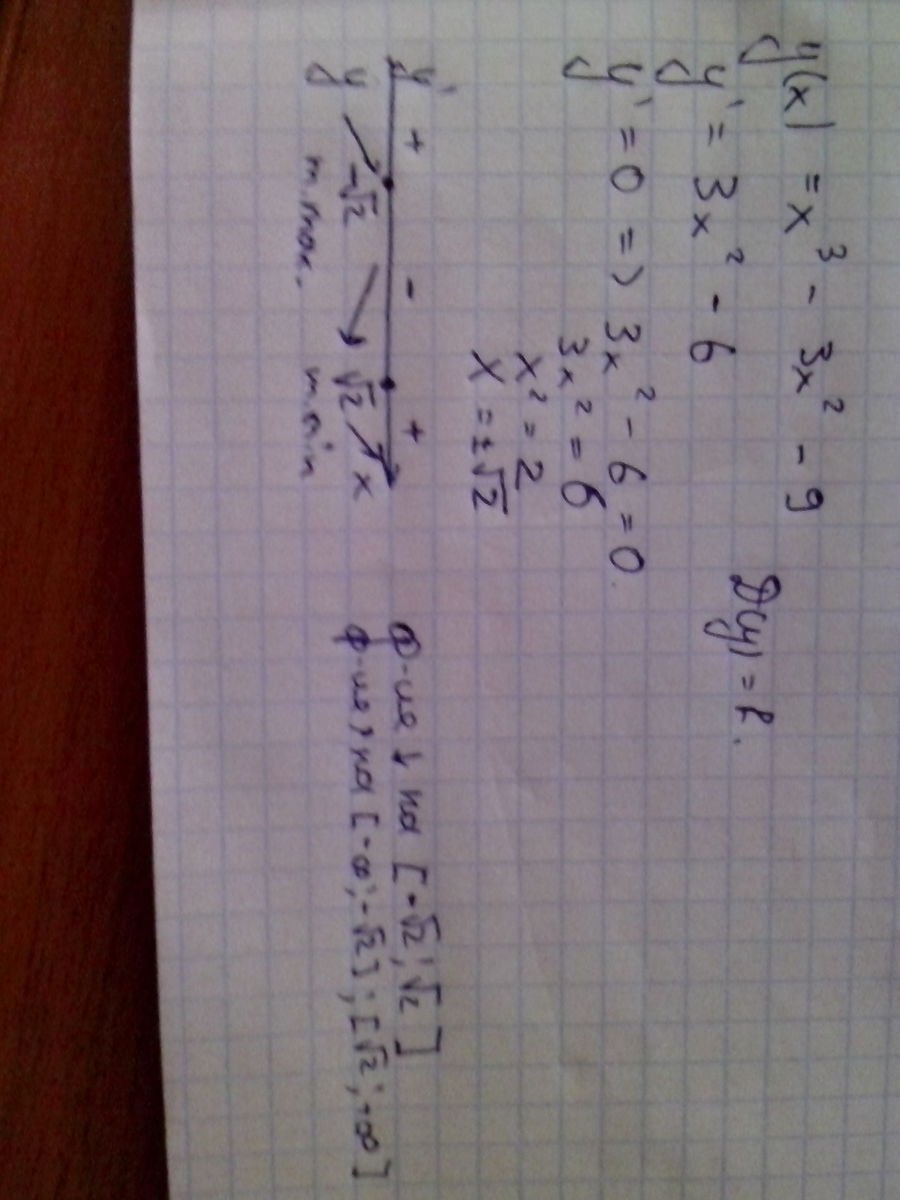 y(x) = x³ - 3x² - 9
D(y) = R.
y' = 3x² - 6
y' = 0 => 3x² - 6 = 0.
3x² = 6
x² = 2
x = ±√2
y' + - +
y -√2 √2 x
т. max. т. min
ф-ия ↓ на [-√2; √2]
ф-ия ↗ на [-∞; -√2]; [√2; +∞]